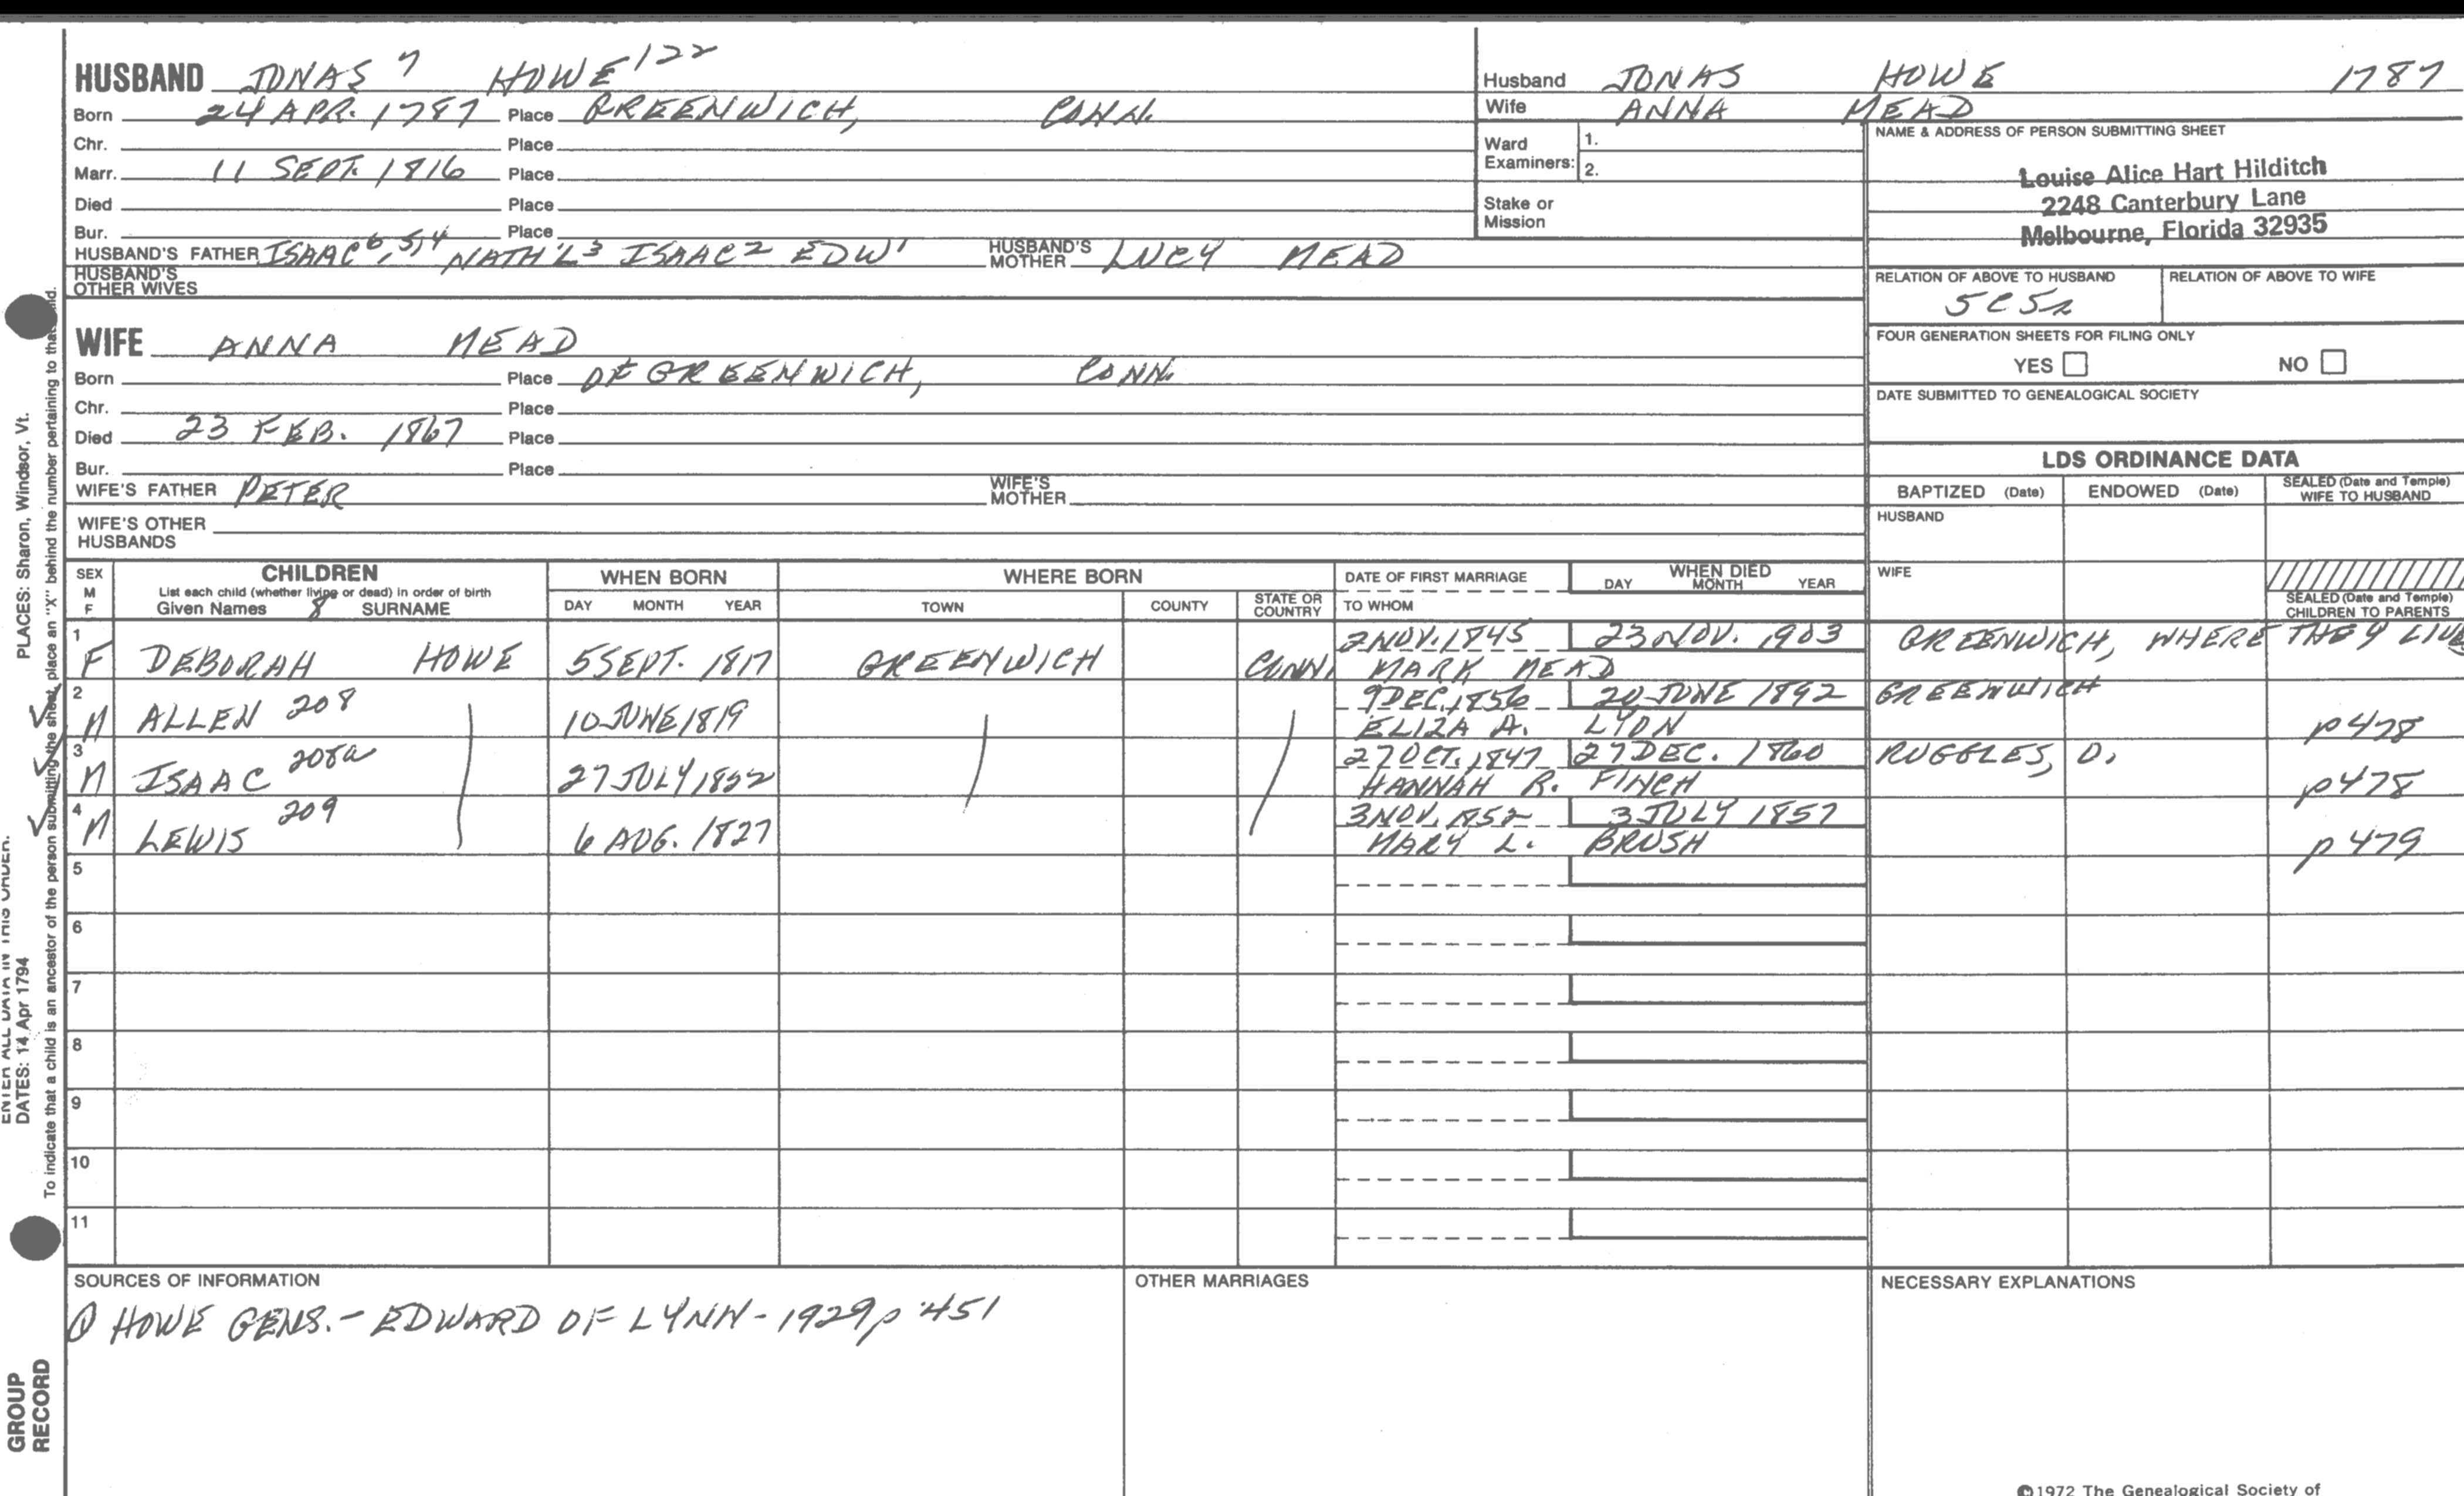 HUSBAND JONAS 7 HOWE 122
Born 24 APR. 1787 Place GREENWICH, CONN.
Chr. Place
Marr. 11 SEPT. 1816 Place
Died Place
Bur. Place
HUSBAND'S FATHER ISAAC 6, 5, 4 NATH'L 3 ISAAC 2 EDW 1 HUSBAND'S MOTHER LUCY MEAD
HUSBAND'S OTHER WIVES
WIFE ANNA MEAD
Born Place OF GREENWICH, CONN.
Chr. Place
Died 23 FEB. 1867 Place
Bur. Place
WIFE'S FATHER PETER WIFE'S MOTHER
WIFE'S OTHER HUSBANDS
Husband JONAS HOWE 1787
Wife ANNA MEAD
Ward Examiners: 1.
2.
Stake or Mission
NAME & ADDRESS OF PERSON SUBMITTING SHEET
Louise Alice Hart Hilditch
2248 Canterbury Lane
Melbourne, Florida 32935
RELATION OF ABOVE TO HUSBAND RELATION OF ABOVE TO WIFE
5C5R
FOUR GENERATION SHEETS FOR FILING ONLY
YES NO
DATE SUBMITTED TO GENEALOGICAL SOCIETY
LDS ORDINANCE DATA
BAPTIZED (Date) ENDOWED (Date) SEALED (Date and Temple) WIFE TO HUSBAND
HUSBAND
WIFE
SEALED (Date and Temple) CHILDREN TO PARENTS
SEX M F CHILDREN WHEN BORN WHERE BORN DATE OF FIRST MARRIAGE WHEN DIED
List each child (whether living or dead) in order of birth
Given Names 8 SURNAME DAY MONTH YEAR TOWN COUNTY STATE OR COUNTRY TO WHOM DAY MONTH YEAR
1 F DEBORAH HOWE 5 SEPT. 1817 GREENWICH CONN. 2 NOV. 1845 23 NOV. 1903 GREENWICH, WHERE THEY LIVE
MARK MEAD
2 M ALLEN 208 10 JUNE 1819 9 DEC. 1856 20 JUNE 1892 GREENWICH
ELIZA A. LYON p478
3 M ISAAC 208a 27 JULY 1822 27 OCT. 1847 27 DEC. 1860 RUGGLES, O.
HANNAH R. FINCH p478
4 M LEWIS 209 6 AUG. 1827 3 NOV. 1852 3 JULY 1857
MARY L. BRUSH p479
5
6
7
8
9
10
11
SOURCES OF INFORMATION
① HOWE GENS. - EDWARD OF LYNN - 1929 p 451
OTHER MARRIAGES
NECESSARY EXPLANATIONS
©1972 The Genealogical Society of
PLACES: Sharon, Windsor, Vt.
ENTER ALL DATA IN THIS ORDER.
DATES: 14 Apr 1794
To indicate that a child is an ancestor of the person submitting the sheet, place an "X" behind the number pertaining to that
GROUP
RECORD